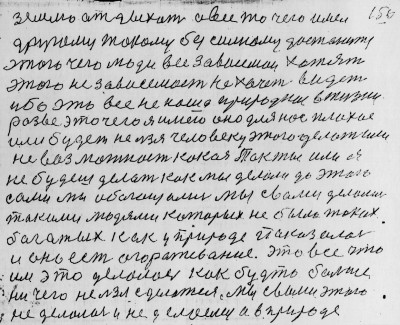 землю отдыхат а вместо чего имел 156
другому такому бессилному достанит
этого чего люди все зависили хотят
этого не зависимост не хочат видет
ибо это все не наша природная в жизни.
разве это чего я имею оно для нас плохое
или будет нелзя человеку этого делат или
не возможност какая Так ты или я
не будеш делат как мы делали до этого
сами мы обогощалис мы с вами делалис
такими людями которых не было таких
багатых как у природе показалос
и оно ест огораживание. Это все что
им это делалос как будто болше
ни чего нелзя сделатся, мы с вами этого
не делалос и не делаем а в природе